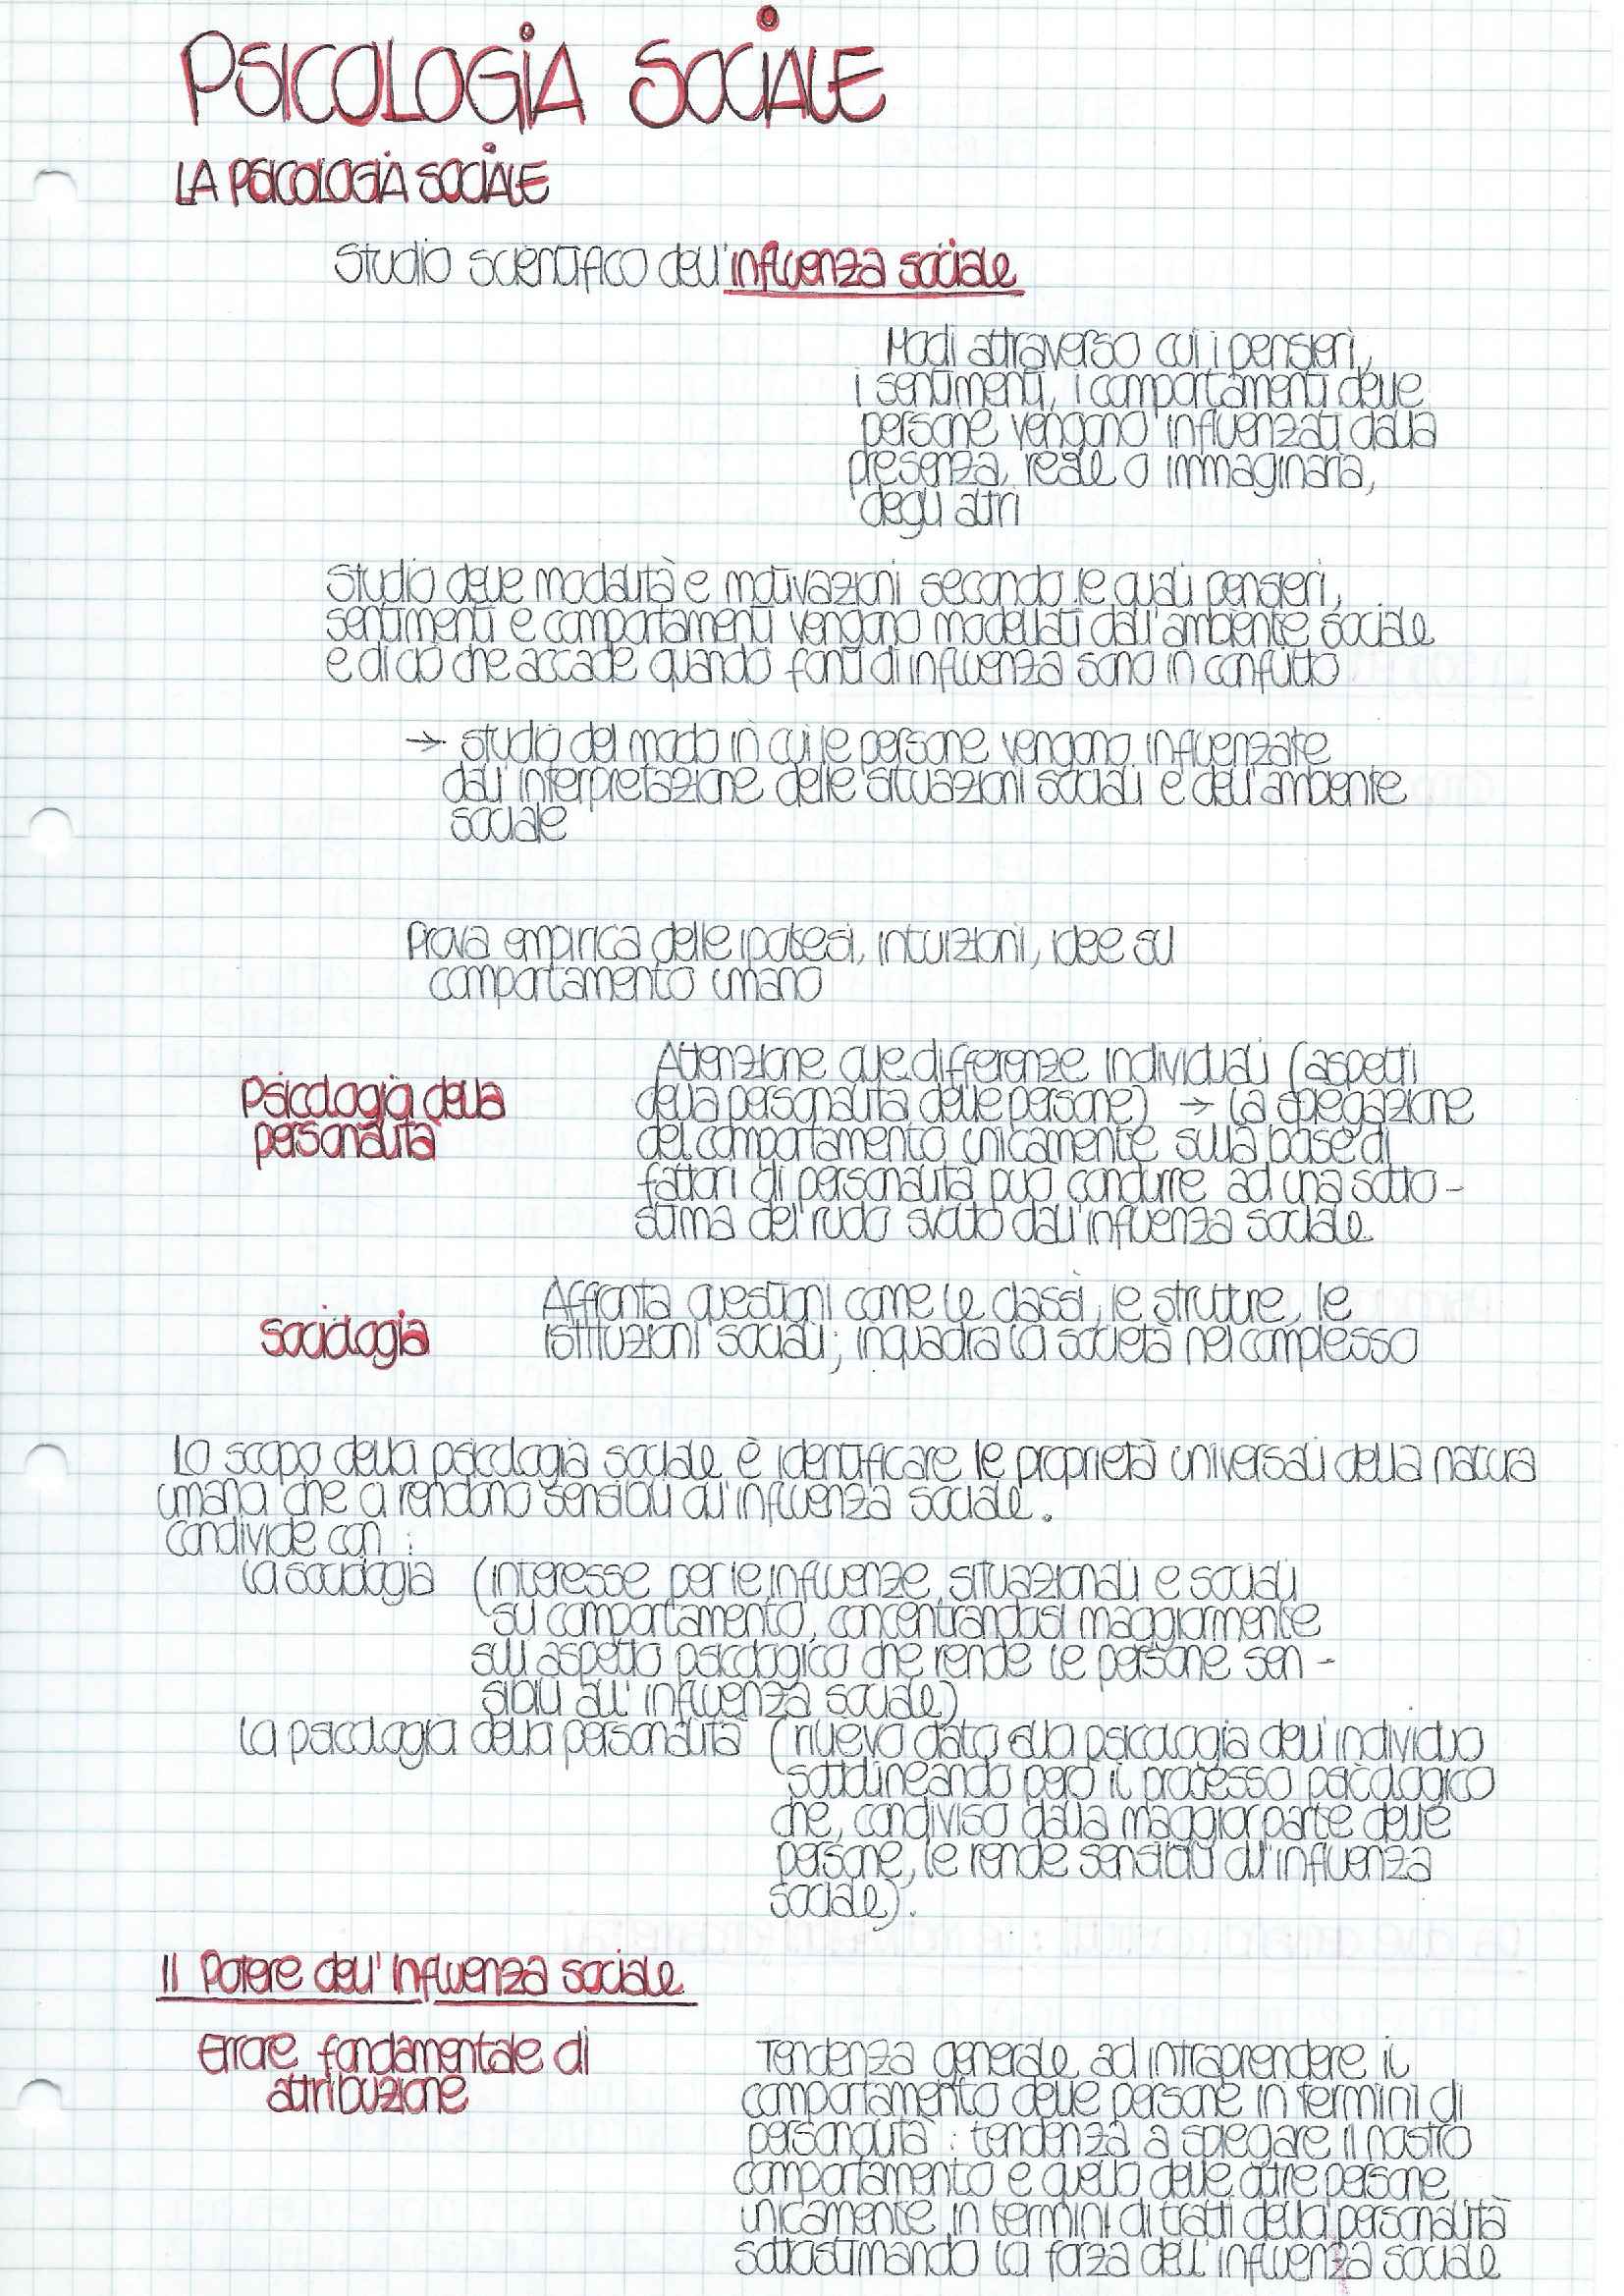 PSICOLOGIA SOCIALE
LA PSICOLOGIA SOCIALE
Studio scientifico dell'influenza sociale
Modi attraverso cui i pensieri,
i sentimenti, i comportamenti delle
persone vengono influenzati dalla
presenza, reale o immaginaria,
degli altri
Studio delle modalità e motivazioni secondo le quali pensieri,
sentimenti e comportamenti vengono modellati dall'ambiente sociale
e di ciò che accade quando fonti di influenza sono in conflitto
→ studio del modo in cui le persone vengono influenzate
dall'interpretazione delle situazioni sociali e dell'ambiente
sociale
Prova empirica delle ipotesi, intuizioni, idee su
comportamento umano
Psicologia della
personalità
Attenzione alle differenze individuali (aspetti
della personalità delle persone) → la spiegazione
del comportamento unicamente sulla base di
fattori di personalità può condurre ad una sotto-
stima del ruolo svolto dall'influenza sociale
Sociologia
Affronta questioni come le classi, le strutture, le
istituzioni sociali; inquadra la società nel complesso
Lo scopo della psicologia sociale è identificare le proprietà universali della natura
umana che ci rendono sensibili all'influenza sociale.
Condivide con :
la sociologia (interesse per le influenze situazionali e sociali
su comportamento, concentrandosi maggiormente
sull'aspetto psicologico che rende le persone sen-
sibili all'influenza sociale)
la psicologia della personalità (rilievo dato alla psicologia dell'individuo
sottolineando però il processo psicologico
che, condiviso dalla maggior parte delle
persone, le rende sensibili all'influenza
sociale).
Il Potere dell'Influenza sociale
Errore fondamentale di
attribuzione
Tendenza generale ad intraprendere il
comportamento delle persone in termini di
personalità : tendenza a spiegare il nostro
comportamento e quello delle altre persone
unicamente in termini di tratti della personalità
sottostimando la forza dell'influenza sociale